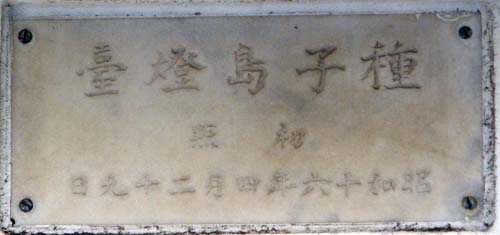 種子島燈臺
初照
昭和十六年四月二十九日